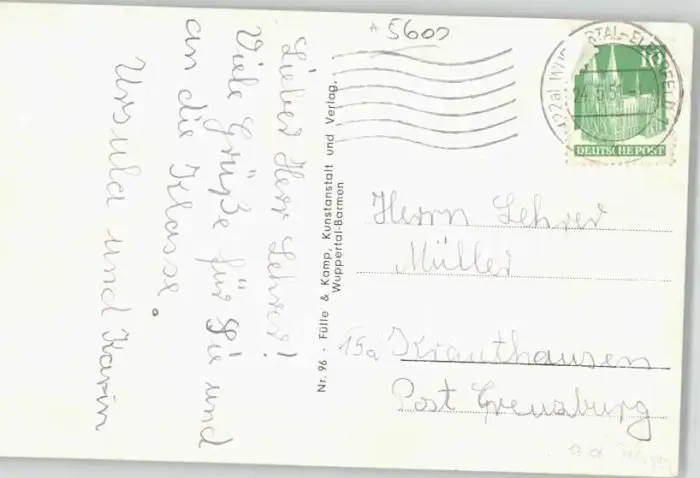 5600
Lieber Herr Lehrer!
Viele Grüße für Sie und
an die Klasse.
Ursula und Karin
Nr. 96 · Fülle & Kamp, Kunstanstalt und Verlag,
Wuppertal-Barmen
10
DEUTSCHE POST
24.5.51
Herrn Lehrer
Müller
15a Krauthausen
Post Creuzburg